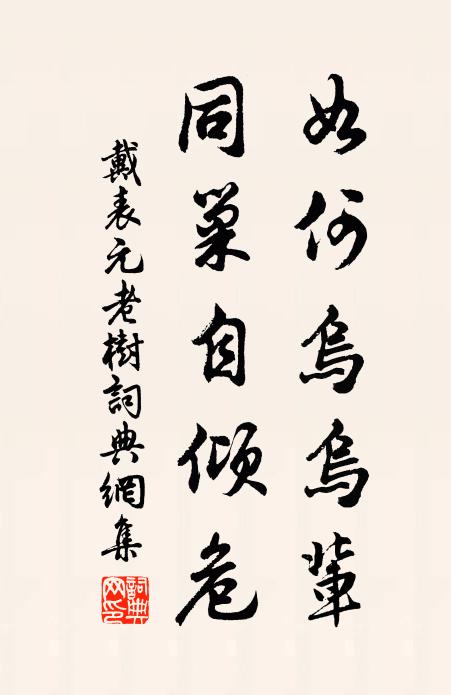 如何烏烏輩
同巢自傾危
戴表元老樹詞典網集
詞典網印